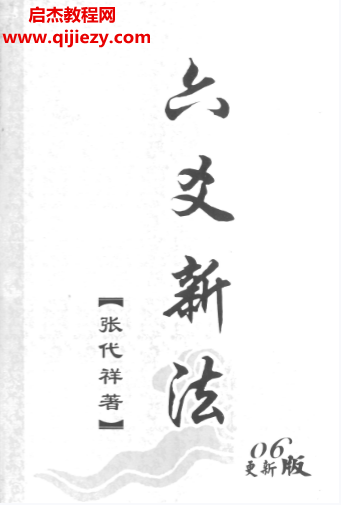 启杰教程网
www.qijiezy.com
六爻新法
【张代祥著】
06
更新版